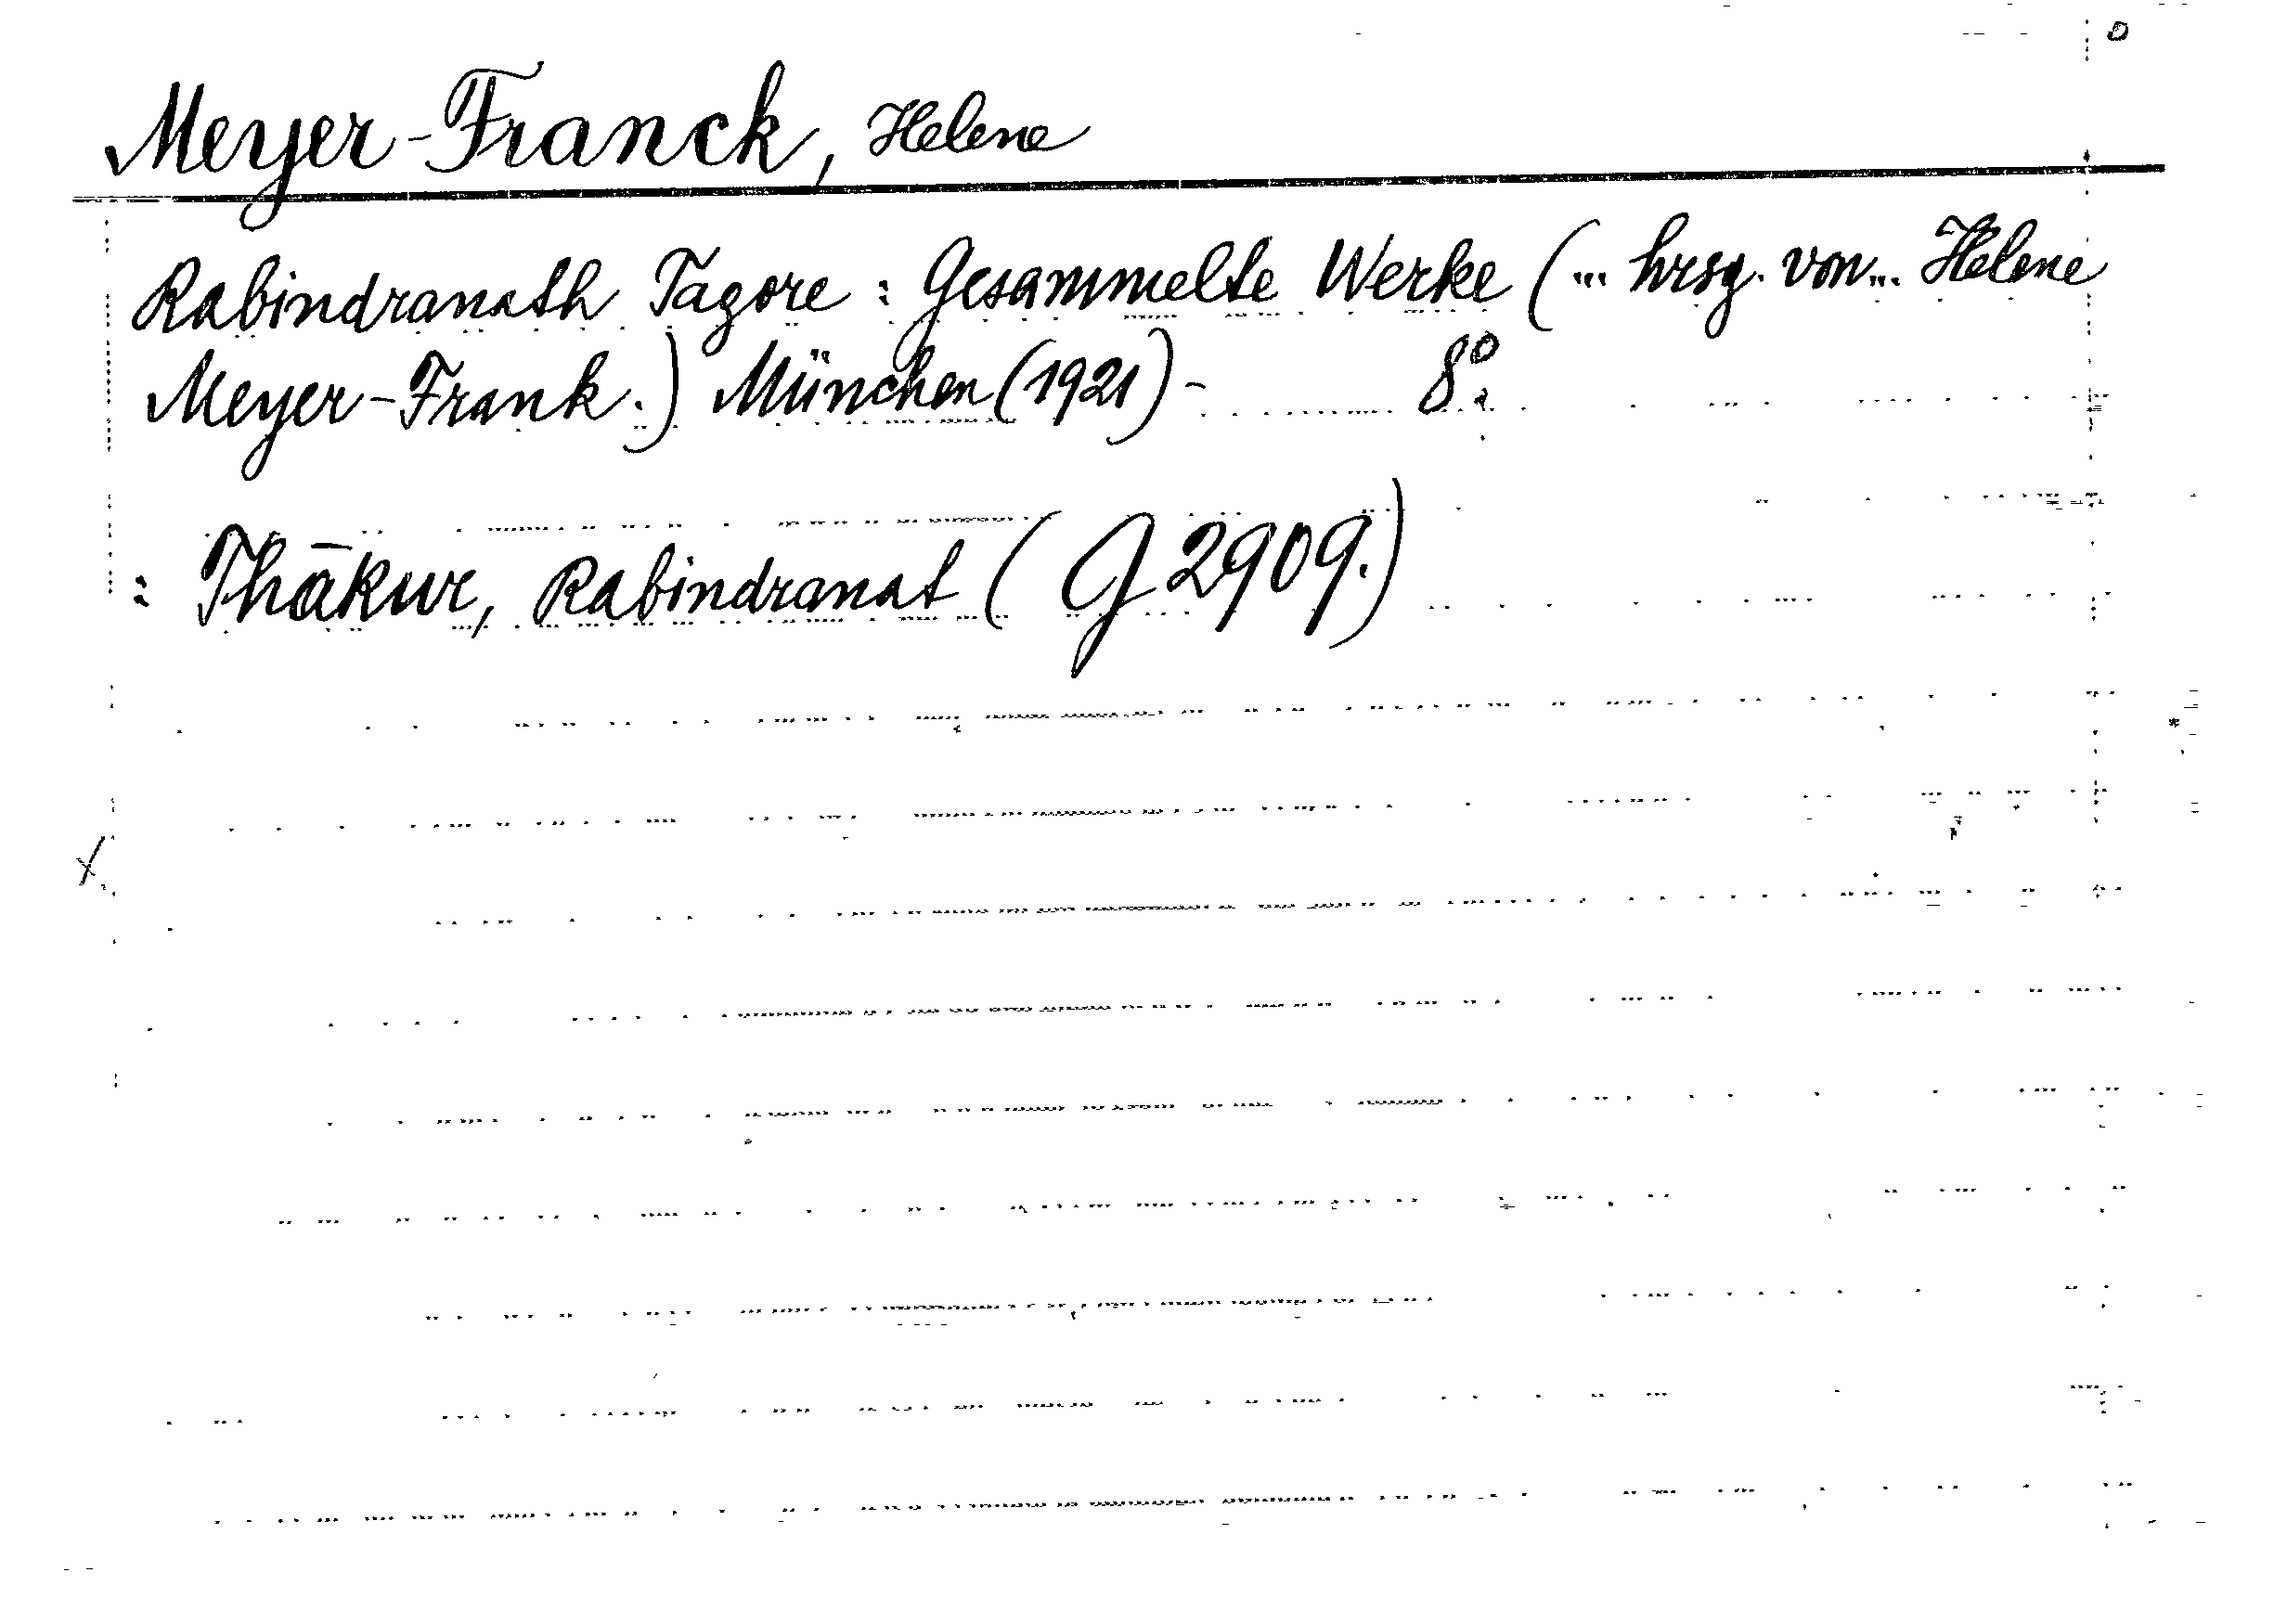 Meyer-Franck, Helene
Rabindranath Tagore : Gesammelte Werke (... hrsg. von ... Helene
Meyer-Frank.) München (1921)- 8°.
: Thākur, Rabindranat (G 2909.)